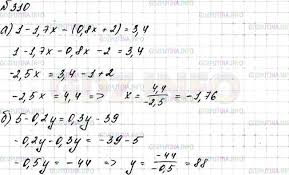 №310
а) 1-1,7x-(0,8x+2)=3,4
1-1,7x-0,8x-2=3,4
-2,5x=3,4-1+2
-2,5x=4,4 => x=4,4/-2,5=-1,76
б) 5-0,2y=0,3y-39
-0,2y-0,3y=-39-5
-0,5y=-44 => y=-44/-0,5=88